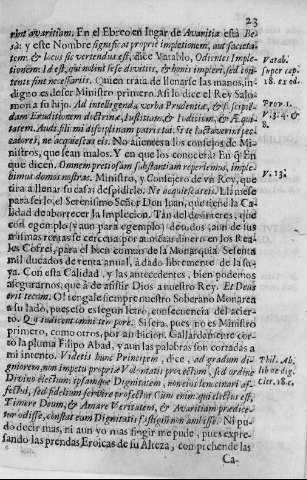 23
rint avaritiam. En el Ebreo en lugar de Avaritia està Be-
sà: y este Nombre significat propriè impletionem, aut sacieta-
tem: & locus sic vertendus est, dice Vatablo, Odientes Imple-
tionem: Id est, qui nolint sese divitiis, & bonis impleri, sed con-
tenti sint necessariis. Quien trata de llenarse las manos, in-
digno es de ser Ministro primero. Assi lo dice el Rey Salo-
mon à su hijo. Ad intelligenda verba Prudentiæ, & suscipien-
dam Eruditionem doctrinæ, Iustitiam, & Iudicium, & Æqui-
tatem. Audi fili mi disciplinam patris tui. Si te lactaverint pec-
catores, ne acquiescas eis. No assientas à los consejos de Mi-
nistros, que sean malos. Y en que los conocerà? En q̃? En
que dicen. Omnem pretiosam substantiam reperiemus, imple-
bimus domos nostras. Ministro, y Consejero de vn Rey, que
tira à llenar su casa? despidirle. Ne acquiescas eis. Llamese
para serlo, el Serenissimo Señor Don Juan, que tiene la Ca-
lidad de aborrecer la Implecion. Tan de desinteres, que
con egemplo (y aun para egemplo) de todos, aun de sus
les Cofres, para el bien comun de la Monarquia. Sesenta
mil ducados de renta anual, à dado libremente de la su-
ya. Con esta Calidad, y las antecedentes, bien podemos
assegurarnos, que à de assistir Dios à nuestro Rey. Et Deus
erit tecum. O! tengale siempre nuestro Soberano Monarca
à su lado, pues es lo este gun letrero, consequencia del acier-
to.
primero, como otros, por ambicion. Gallardamente cor-
tò la pluma Filipo Abad, y aun las palabras son cortadas à
mi intento. Videtis hunc Principem, dice, ad gradum di-
gniorem, non impetu propriæ Voluntatis provectum, sed ordine
Divino electum ipsamque Dignitatem, non eius lenocinari af-
fectui, sed fidelium servire profectui. Cum enim qui electus est,
Timere Deum, & Amare Veritatem, & Avaritiam prædice-
tur odisse, constat eam Dignitatis fastigium non ambisse. Ni pu-
do decir mas, ni aun yo mas fingir me pude, pues expre-
sando las prendas Eroicas de su Alteza, comprehende las
Ca-
Vatab.
super cap.
18. exod.
Prov. 1.
V. 3. 4. &
8.
V. 13.
Phil. Ab.
lib. de dig.
Cler. 18. c.